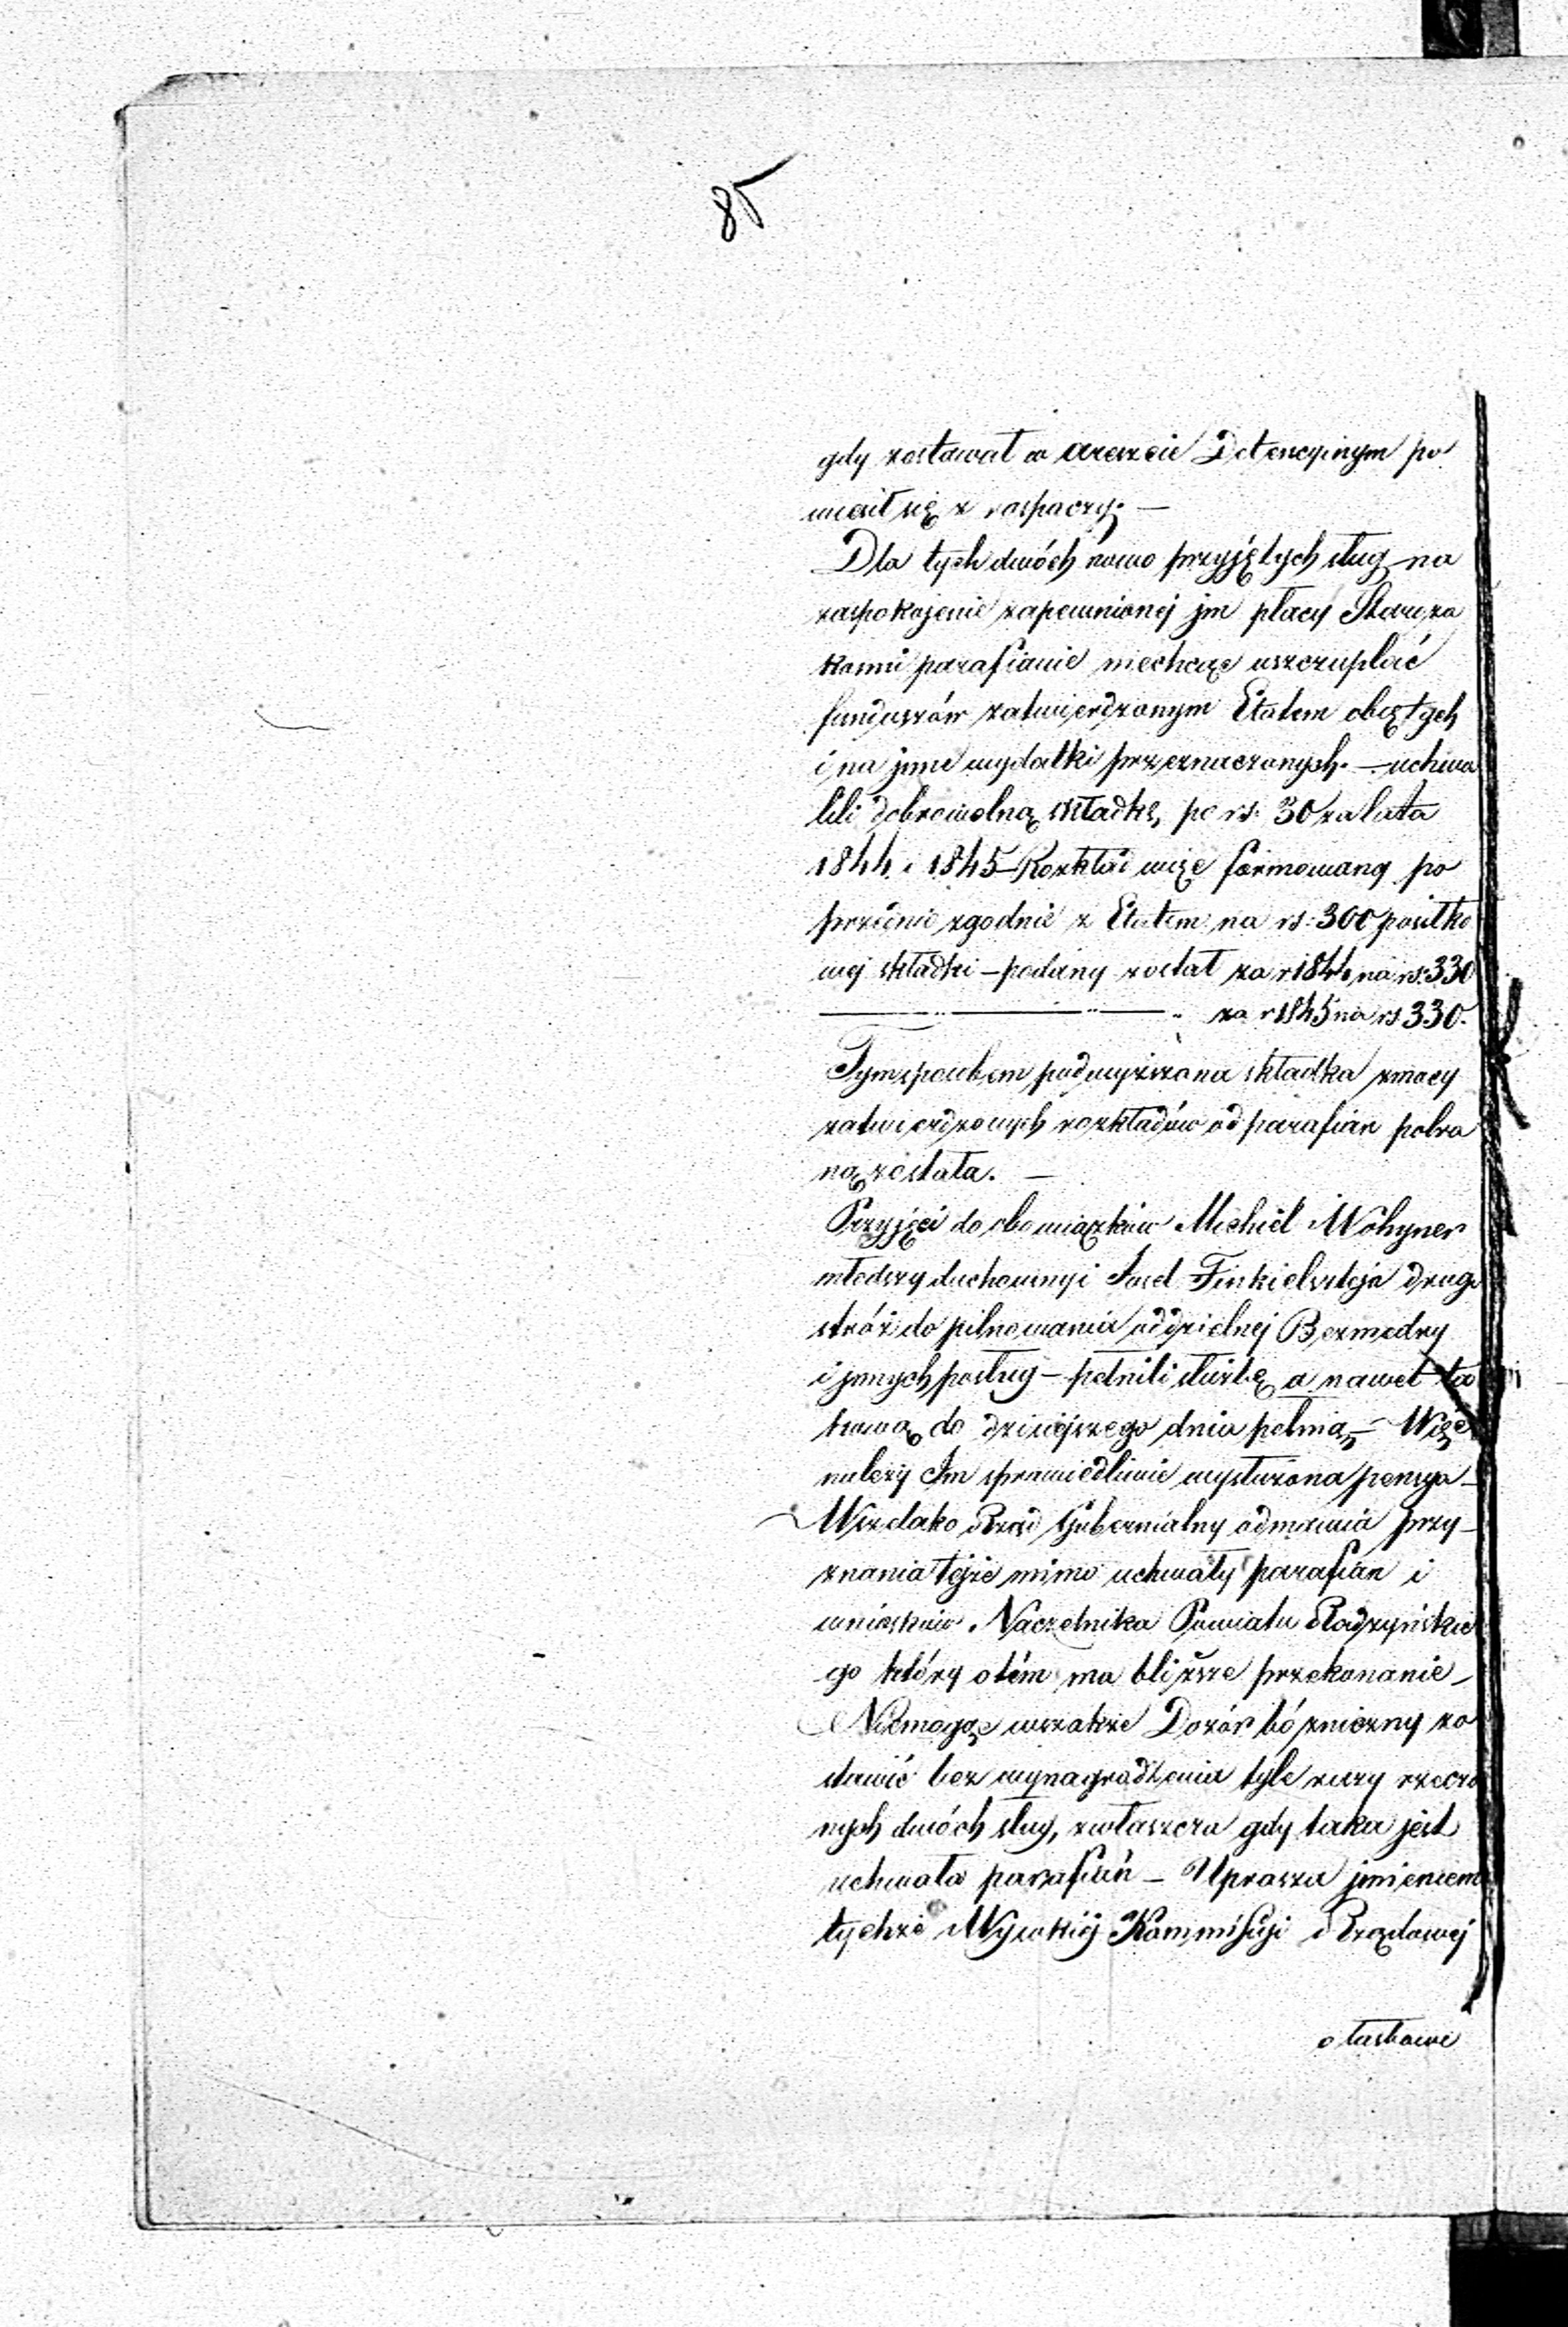 85
gdy zostawał w areszcie Detencyinym po
wiesił się z rospaczy. —
Dla tych dwóch nowo przyjętych sług na
zaspokojenie zapewnionej jm płacy Staroza
konni parafianie niechcąc uszczuplać
funduszów zatwierdzonym Etatem objętych
i na jnne wydatki przeznaczonych. — uchwa
lili dobrowolną składkę, po rs: 30 za lata
1844 i 1845 — Rozkład więc formowany po
przednio zgodnie z Etatem na rs: 300 posiłko
wej składki — podany został za r 1844 na rs: 330
za r 1845 na rs 330.
Tym sposobem podwyższona składka zmocy
zatwierdzonych rozkładów od parafian pobra
ną została. —
Przyjęci do obowiązków Michel Wohyner
młodszy duchowny i Josel Finkielsztejn drugi
stróż do pilnowania oddzielnej Bezmedry
i jnnych posług — pełnili służbę a nawet ta
kową do dzisiejszego dnia pełnią, — Więc
należy Im sprawiedliwie wysłużona pensya —
Wszelako Rząd Gubernialny odmawia przy-
znania tejże mimo uchwały parafian i
wniosków Naczelnika Powiatu Radzyńskie
go który o tém ma bliższe przekonanie —
Niemogąc wszakże Dozór bóżniczny zo
stawić bez wynagrodzenia tyle razy rzeczo
nych dwóch sług, zwłaszcza gdy taka jest
uchwała parafian — Uprasza jmieniem
tychże Wysokiéj Kommissyi Rządowej
o łaskawe